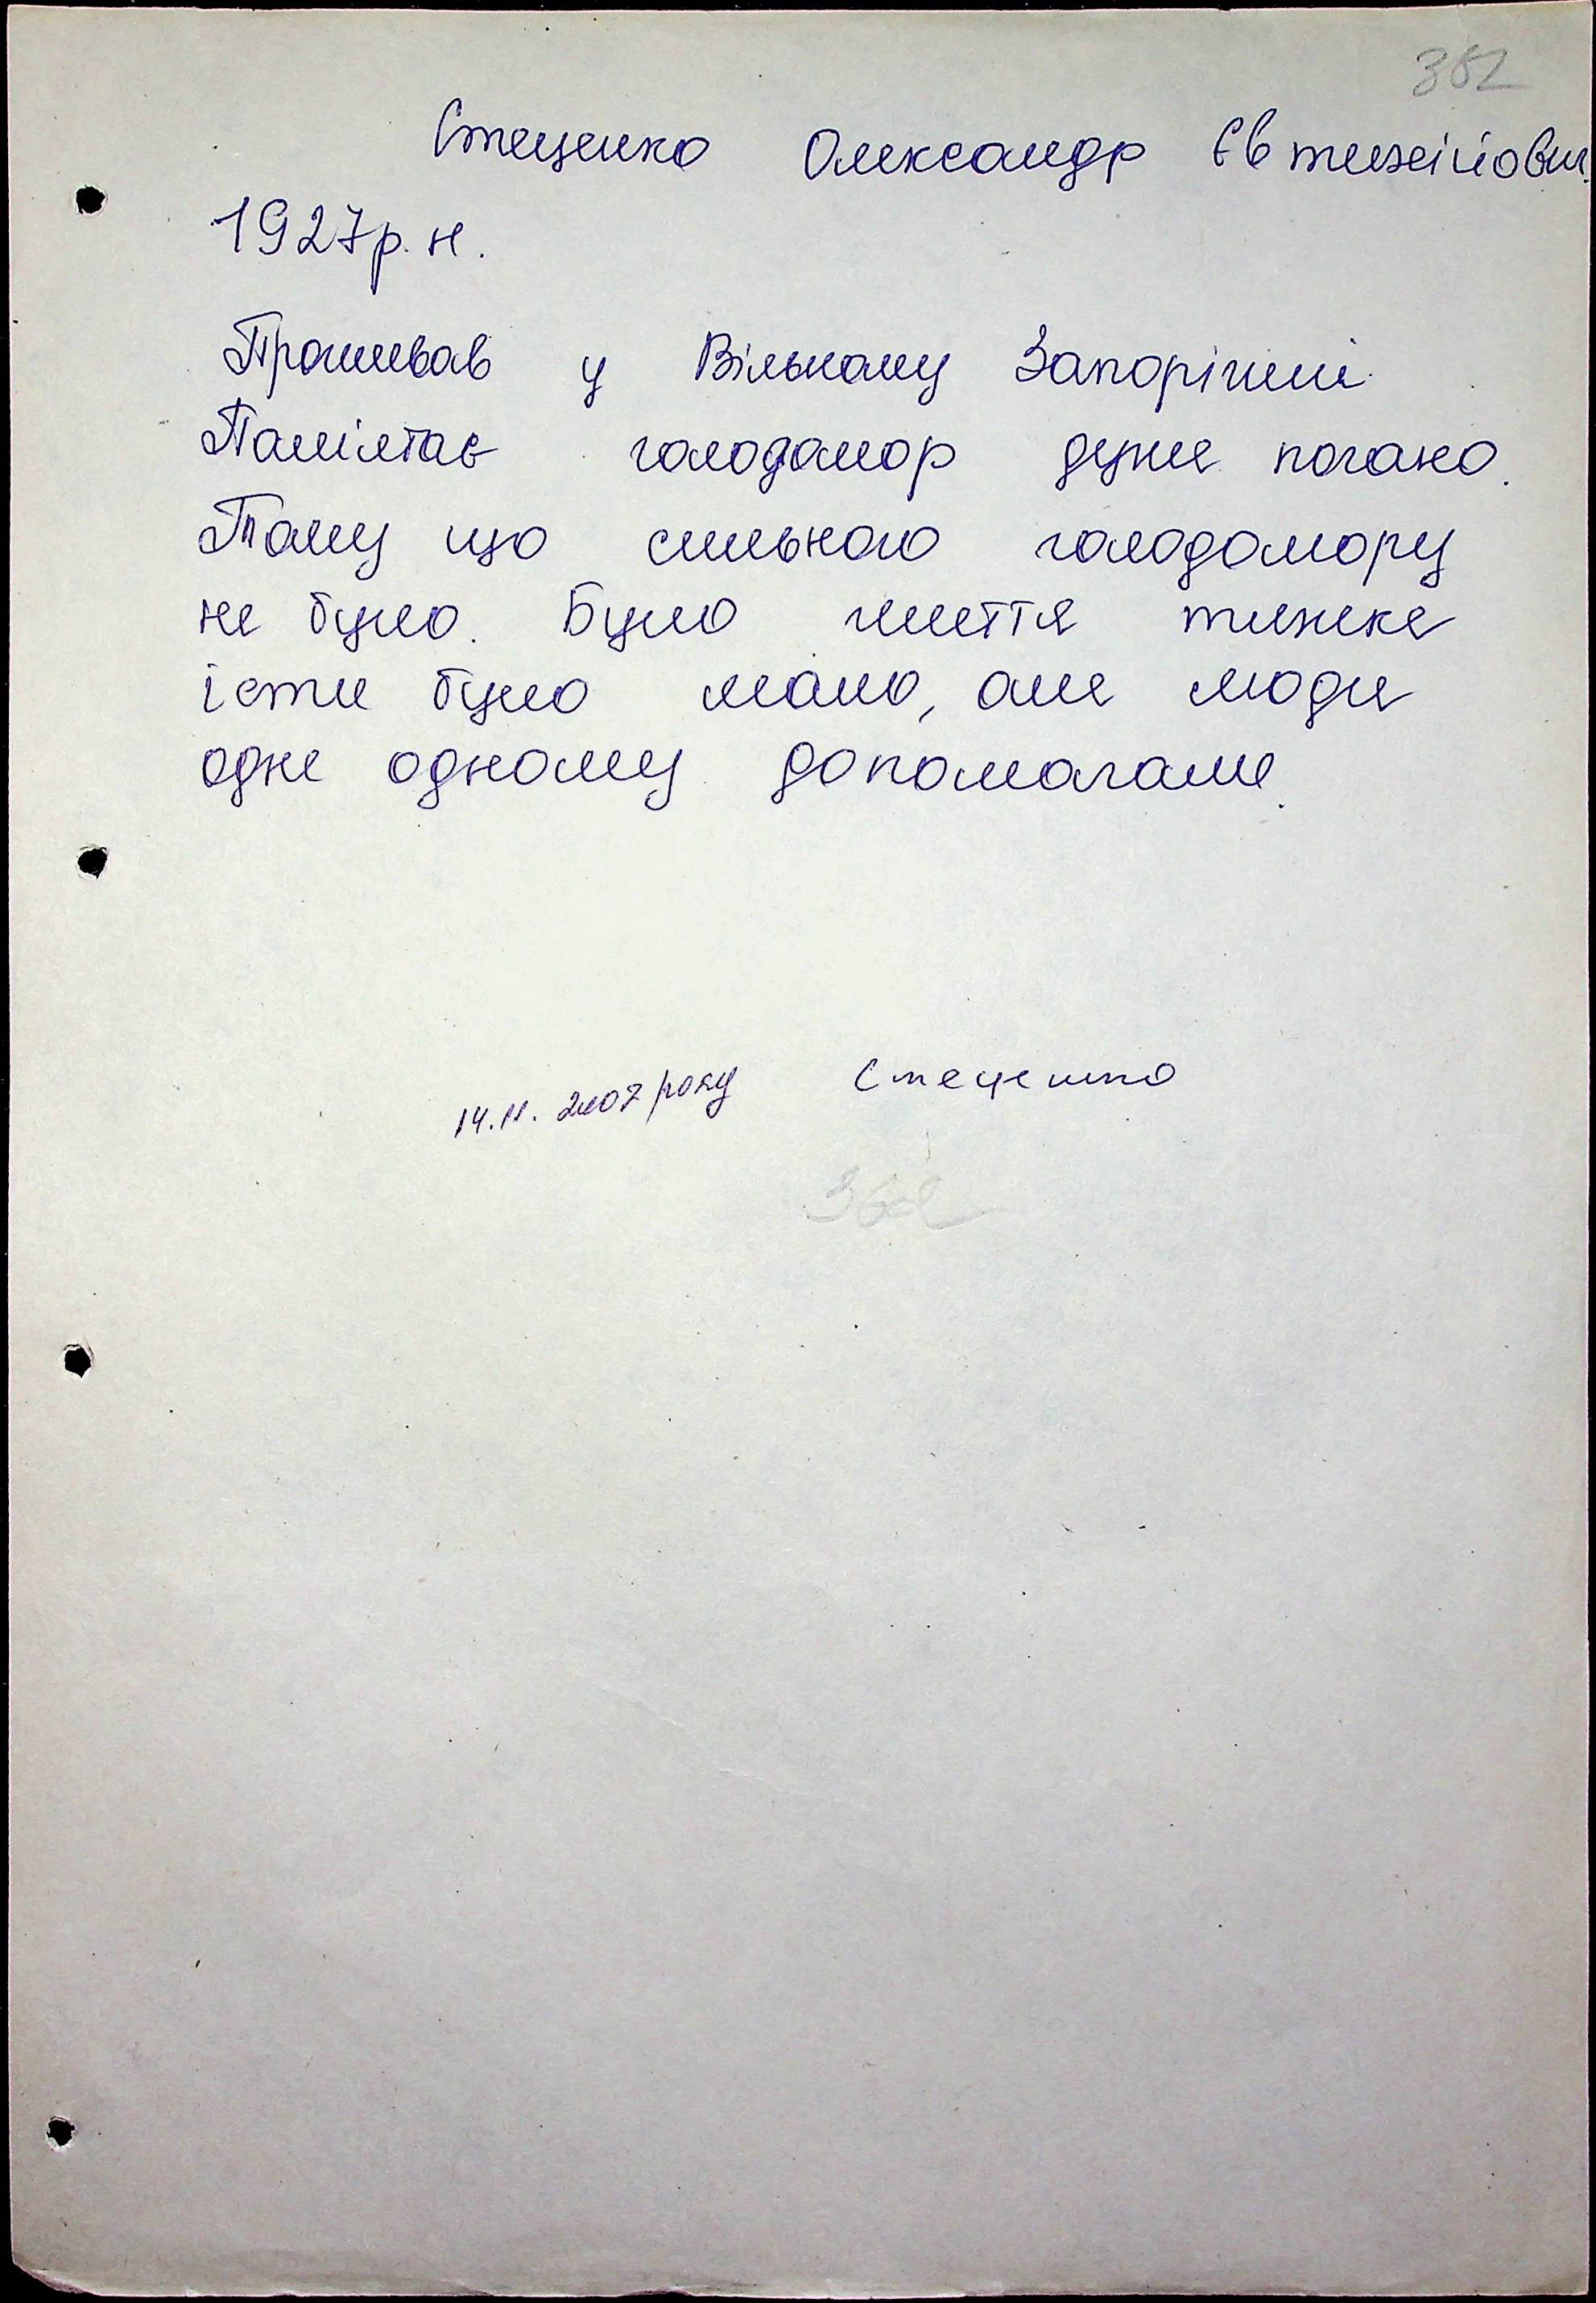 382
Стеценко Олександр Євтихійович
1927р.н.
Проживав у Вільному Запоріжжі
Памілтає голодомор дуже погано.
Тому що сильного голодомору
не було. Було життя тижке
їсти було мало, але люди
одне одному допомагали.
14.11.2007 року Стеценко
362